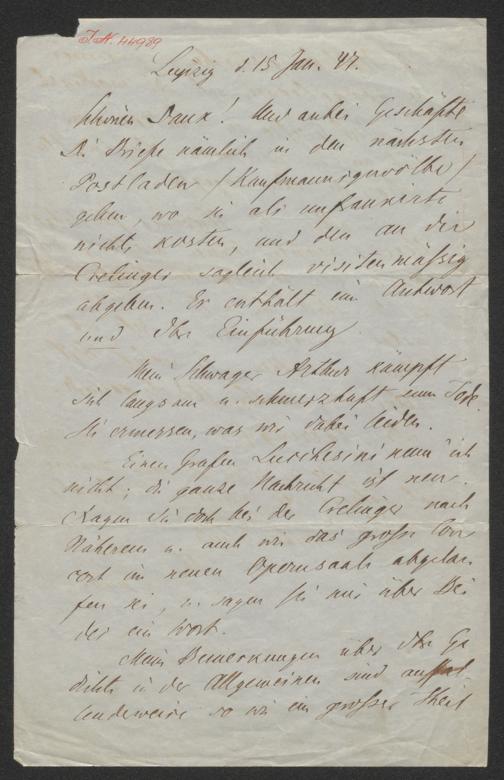 J.N. 44989
Leipzig d. 15 Jan. 47.
Schönen Dank! Und anbei Geschäfte
Die Briefe nämlich in den nächsten
Postladen (Kaufmannsgewölbe)
geben, wo sie als unfrankirte
nichts kosten, und den an die
Crelinger sogleich visitenmässig
abgeben. Er enthält eine Antwort
und Ihre Einführung.
Mein Schwager Arthur kämpft
sich langsam u. schmerzhaft zum Tode.
Sie ermessen, was wir dabei leiden.
Einen Grafen Lucchesini kenn' ich
nicht; die ganze Nachricht ist neu.
Fragen Sie doch bei der Crelinger nach
Näherem u. auch wie das grosse Con
cert im neuen Opernsaale abgelau
fen sei, u. sagen Sie mir über Bei
des ein Wort.
Meine Bemerkungen über Ihre Ge
dichte in der Allgemeinen sind
so wie ein grosser Theil